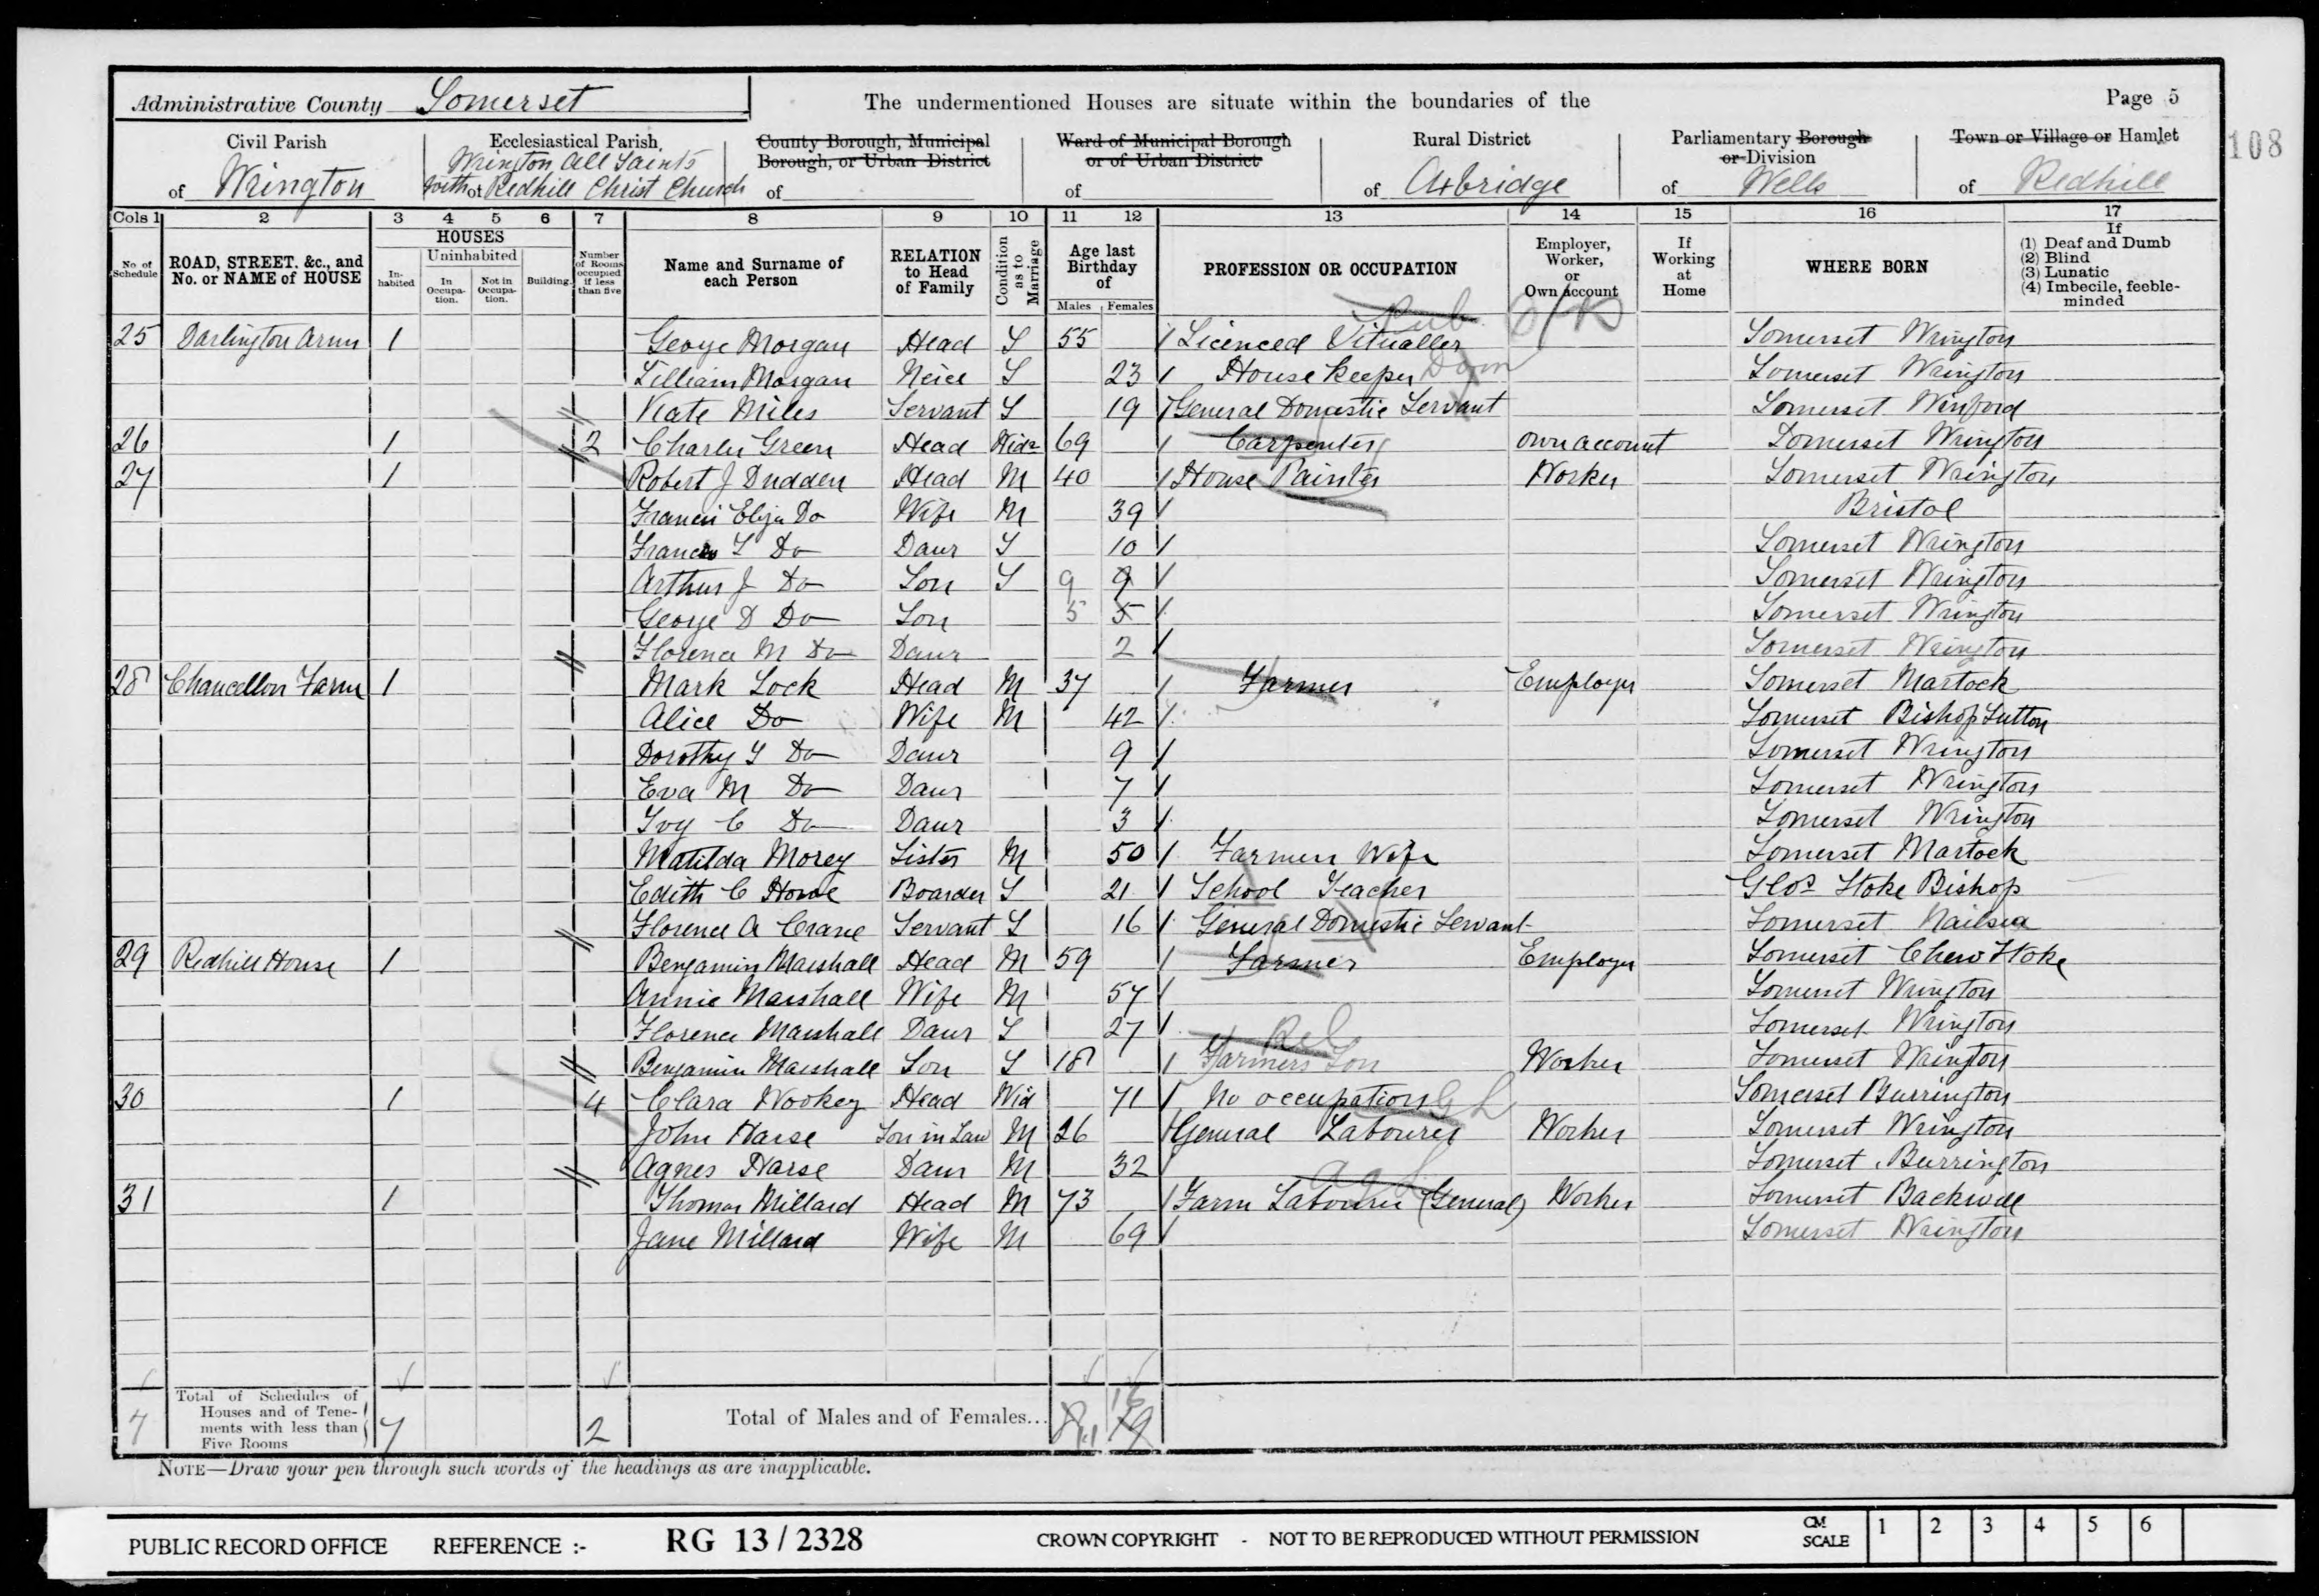 Administrative County Somerset
The undermentioned Houses are situate within the boundaries of the
Page 5
108
Civil Parish of Wrington
Ecclesiastical Parish of Wrington All Saints with Redhill Christ Church
County Borough, Municipal Borough, or Urban District of
Ward of Municipal Borough or of Urban District of
Rural District of Axbridge
Parliamentary Borough or Division of Wells
Town or Village or Hamlet of Redhill
Cols 1 2 3 4 5 6 7 8 9 10 11 12 13 14 15 16 17
No of Schedule
ROAD, STREET, &c., and No. or NAME of HOUSE
HOUSES
Inhabited
Uninhabited
In Occupation.
Not in Occupation.
Building.
Number of Rooms occupied if less than five
Name and Surname of each Person
RELATION to Head of Family
Condition as to Marriage
Age last Birthday of
Males Females
PROFESSION OR OCCUPATION
Employer, Worker, or Own account
If Working at Home
WHERE BORN
If
(1) Deaf and Dumb
(2) Blind
(3) Lunatic
(4) Imbecile, feeble-minded
Pub
25 Darlington Arms 1 George Morgan Head S 55 Licenced Vitualler Somerset Wrington
Lilliam Morgan Neice S 23 House Keeper Dom Somerset Wrington
Kate Miles Servant S 19 General Domestic Servant Somerset Winford
26 1 2 Charles Green Head Widr 69 Carpenter own account Somerset Wrington
27 1 Robert J Dudden Head M 40 House Painter Worker Somerset Wrington
Francis Eliza Do Wife M 39 Bristol
Frances L Do Daur S 10 Somerset Wrington
Arthur J Do Son S 9 9 Somerset Wrington
George D Do Son 5 5 Somerset Wrington
Florence M Do Daur 2 Somerset Wrington
28 Chancellors Farm 1 Mark Lock Head M 37 Farmer Employer Somerset Martock
Alice Do Wife M 42 Somerset Bishop Sutton
Dorothy Y Do Daur 9 Somerset Wrington
Eva M Do Daur 7 Somerset Wrington
Ivy C Do Daur 3 Somerset Wrington
Matilda Morey Sister M 50 Farmers Wife Somerset Martock
Edith C House Boarder S 21 School Teacher Glos Stoke Bishop
Florence A Crane Servant S 16 General Domestic Servant Somerset Nailsea
29 Redhill House 1 Benjamin Marshall Head M 59 Farmer Employer Somerset Chew Stoke
Annie Marshall Wife M 57 Somerset Wrington
Florence Marshall Daur S 27 Somerset Wrington
Rel
Benjamin Marshall Son S 18 Farmers Son Worker Somerset Wrington
30 1 4 Clara Wookey Head Wid 71 No occupation G L Somerset Burrington
John Harse Son in Law M 26 General Labourer Worker Somerset Wrington
Agnes Harse Daur M 32 Somerset Burrington
Ag L
31 1 Thomas Millard Head M 73 Farm Labourer (General) Worker Somerset Backwell
Jane Millard Wife M 69 Somerset Wrington
7 Total of Schedules of Houses and of Tenements with less than Five Rooms 7 2 Total of Males and of Females...
NOTE—Draw your pen through such words of the headings as are inapplicable.
PUBLIC RECORD OFFICE REFERENCE :- RG 13 / 2328 CROWN COPYRIGHT - NOT TO BE REPRODUCED WITHOUT PERMISSION
CM SCALE 1 2 3 4 5 6